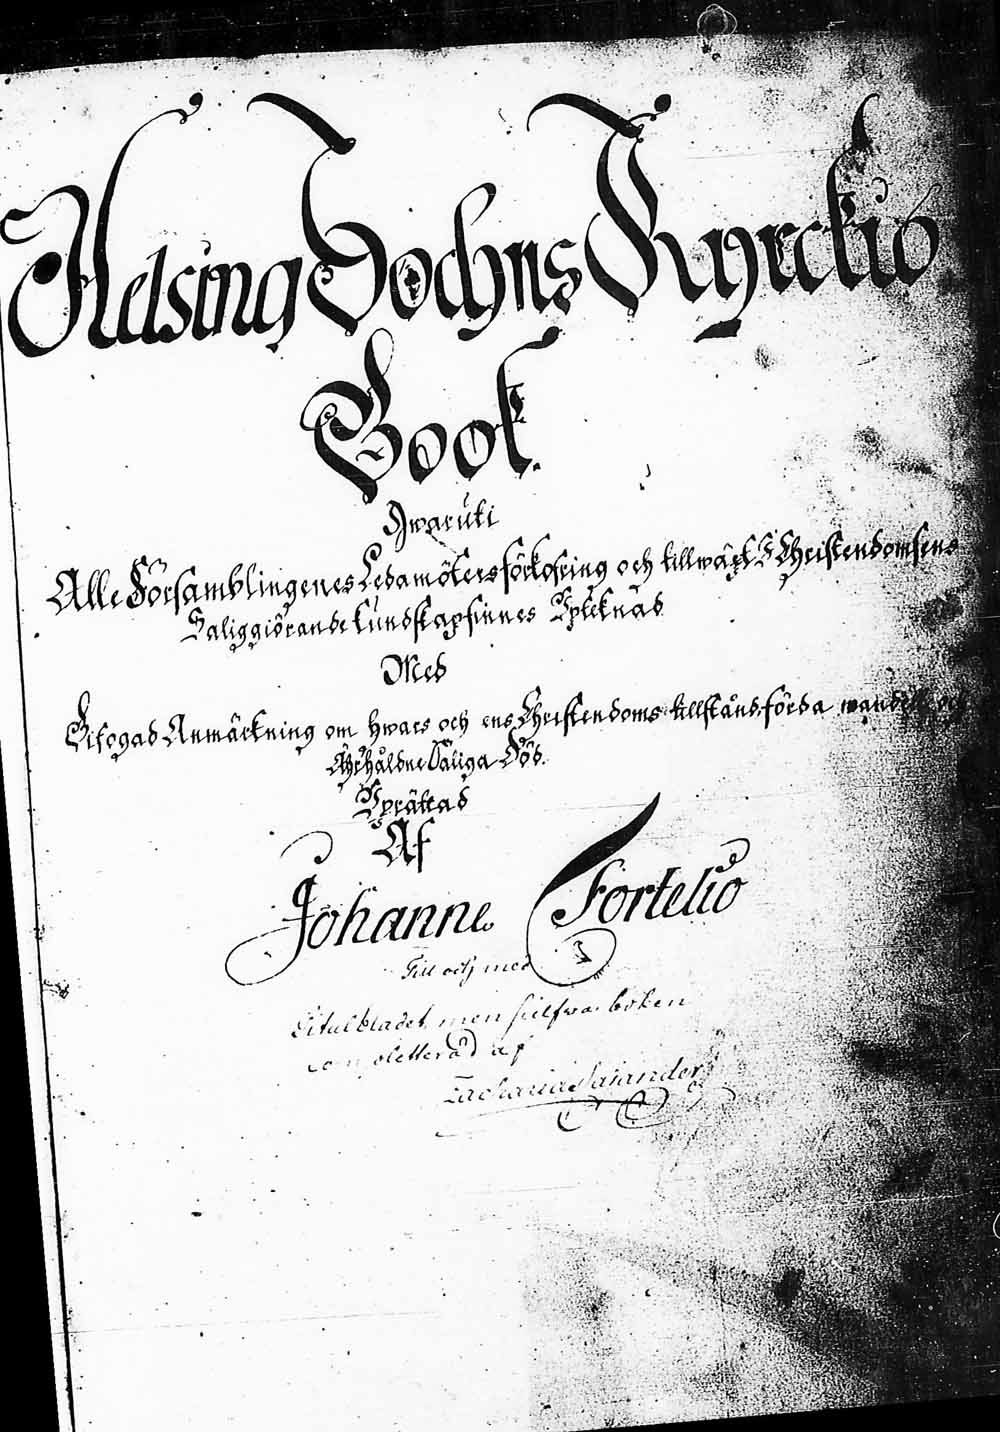 Helsing Sochns Kyrckio
Book.
Hwaruti
Alle Församblingenes Ledamöters förkofring och tillwäxt I Christendomsens
Saliggiörande kundskap finnes Upteknad
Med
Bifogad Anmärkning om hwars och ens Christendoms tillstånd, förda wandel och
Ährhåldne Saliga Död.
Uprättad
Af
Johanne Fortelio
Till och med
Titulbladet, men sielfwa boken
af
Zacharia